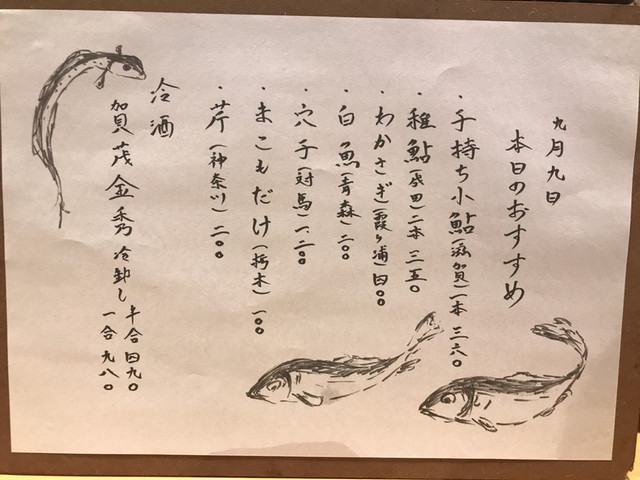 九月九日
本日のおすすめ
・子持ち小鮎(滋賀)一本 三六〇
・稚鮎(成田)二本 三五〇
・わかさぎ(霞ヶ浦)四〇〇
・白魚(青森)二〇〇
・穴子(対馬)一、二〇〇
・まこもだけ(栃木)一〇〇
・芹(神奈川)二〇〇
冷酒
賀茂金秀 冷卸し 半合 四九〇
一合 九八〇